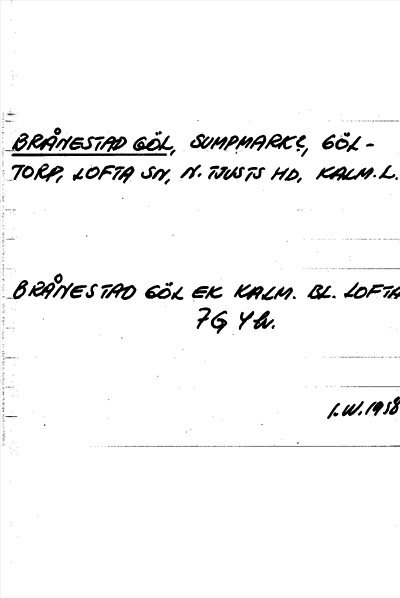 BRÅNESTAD GÖL, SUMPMARK, GÖL-
TORP, LOFTA SN, N. TJUSTS HD, KALM. L.
BRÅNESTAD GÖL EK KALM. BL. LOFTA
7G
I.W. 1958